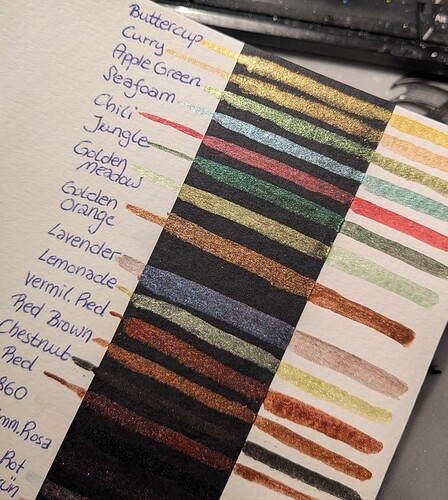 Buttercup
Curry
Apple Green
Seafoam
Chili
Jungle
Golden
meadow
Golden
Orange
Lavender
Lemonade
Vermil. Red
Red Brown
Chestnut
Red
360
imm.Rosa
Rot